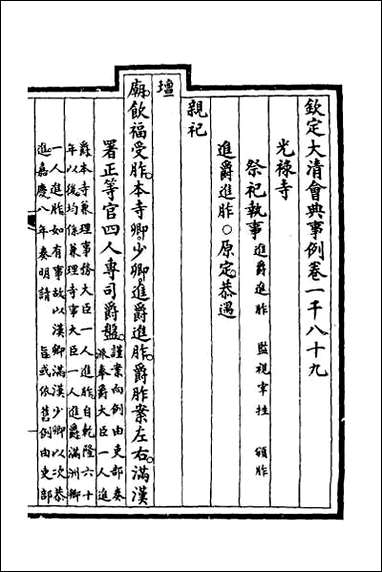 欽定大清會典事例卷一千八十九
光祿寺
祭祀執事 進爵進胙 監視宰牲 頒胙
進爵進胙○原定恭遇
親祀
壇
廟飲福受胙本寺卿少卿進爵進胙爵胙案左右滿漢
署正等官四人專司爵盤
謹案向例由吏部奏
派奉爵大臣一人進
爵本寺兼理事務大臣一人進胙自乾隆六十
年以後均係兼理寺事大臣一人進爵滿洲卿
一人進胙如有事故以漢卿滿漢少卿以次恭
進嘉慶八年奏明請 旨或依舊例由吏部